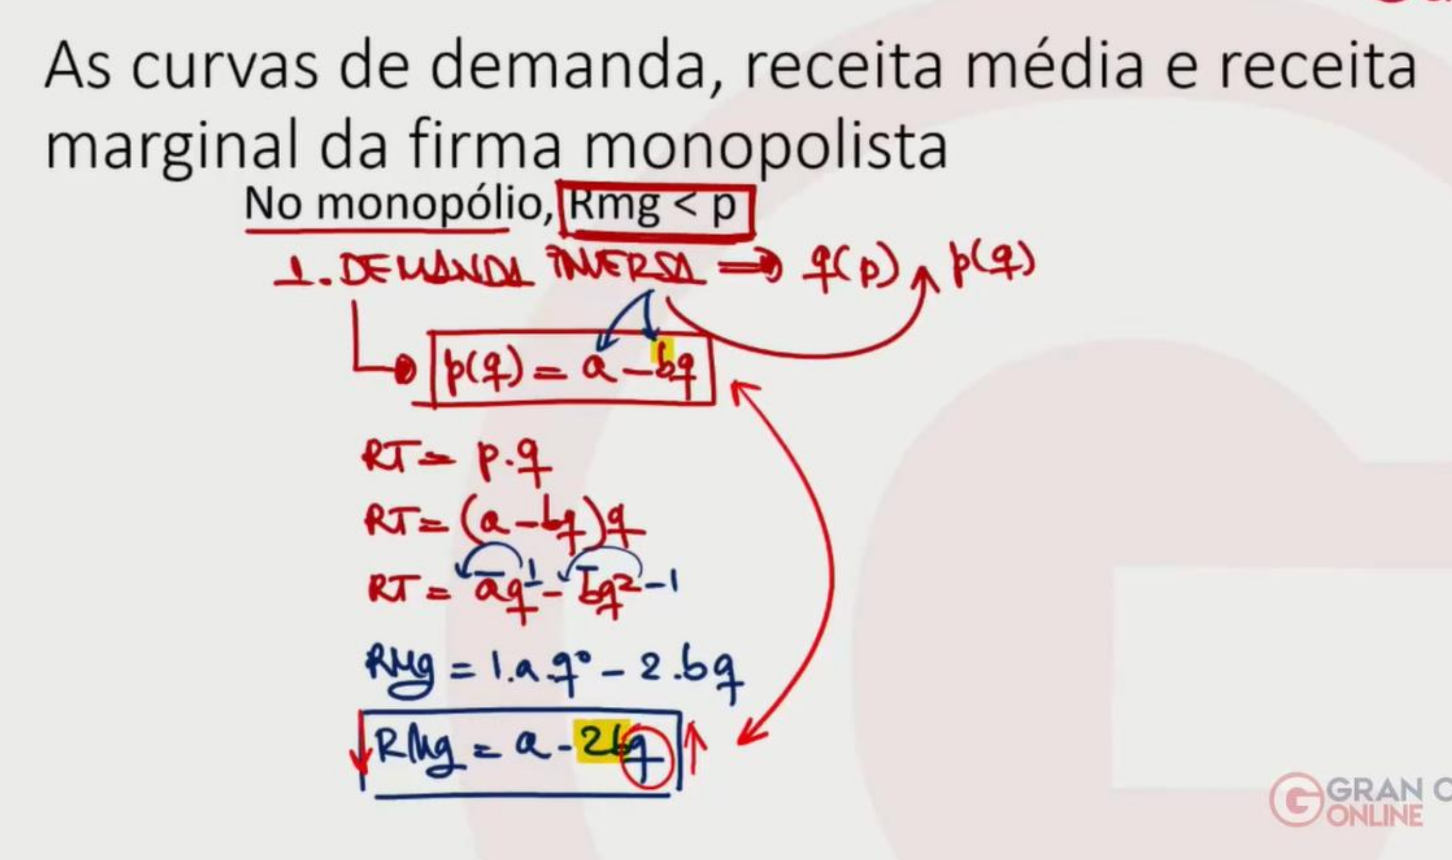 As curvas de demanda, receita média e receita
marginal da firma monopolista
No monopólio, Rmg < p
1. DEMANDA INVERSA ⇒ q(p) p(q)
p(q) = a - bq
RT = p.q
RT = (a - bq)q
RT = aq¹ - bq² - 1
RMg = 1.a.q⁰ - 2.bq
RMg = a - 2bq
GRAN O
ONLINE